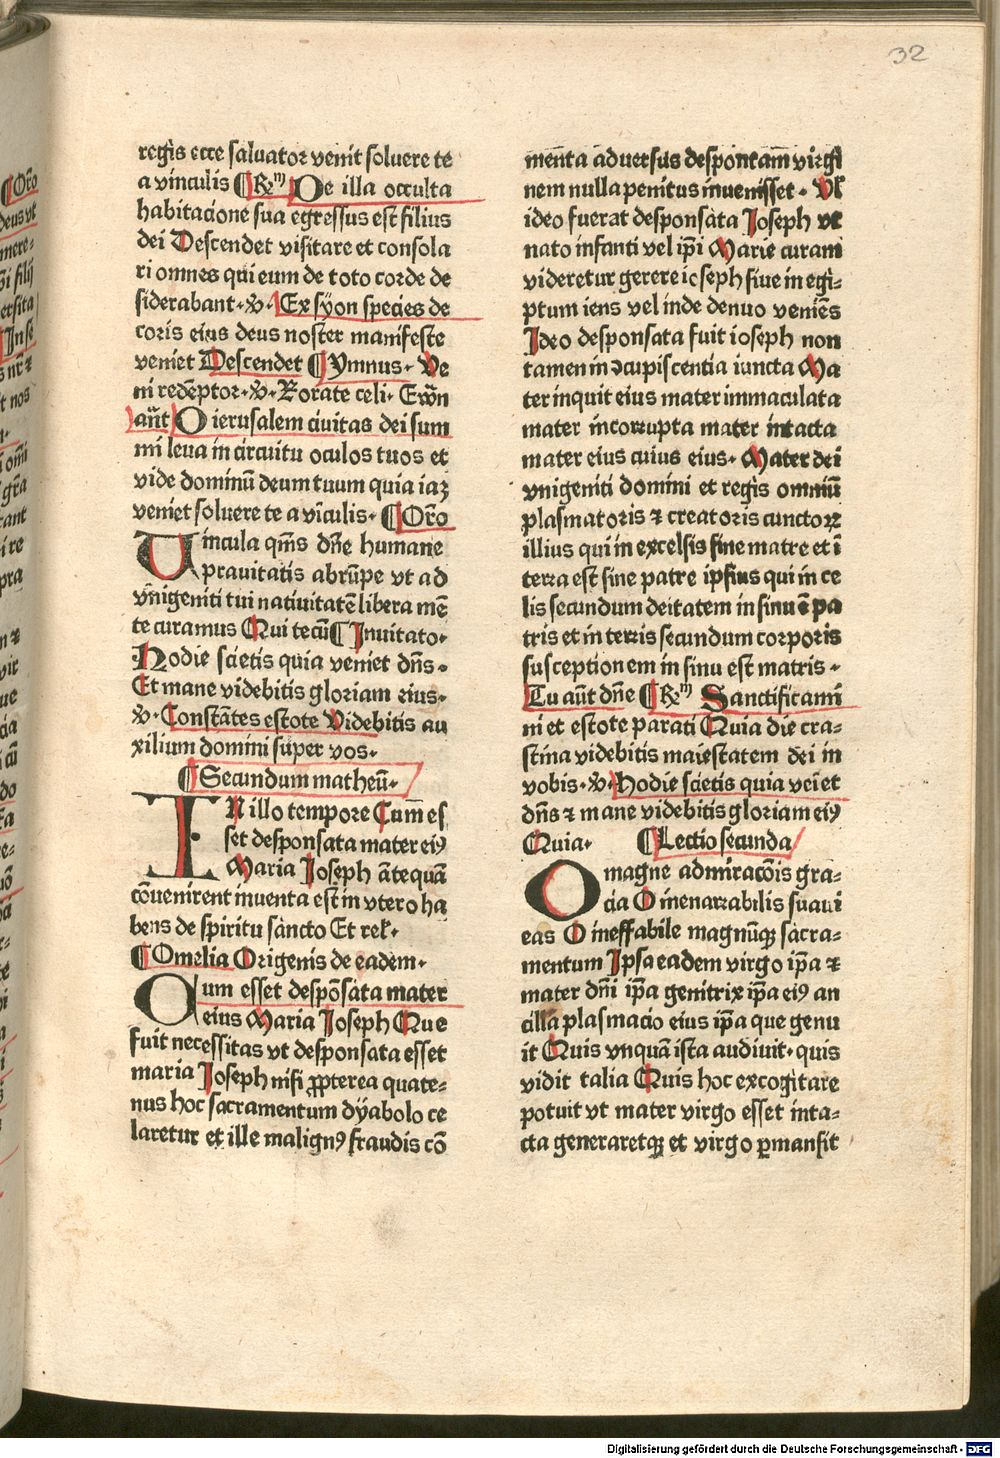 32
regis ecce saluator venit soluere te
a vinculis ¶ Rm De illa occulta
habitacione sua egressus est filius
dei Descendet visitare et consola
ri omnes qui eum de toto corde de
siderabant·v·Ex syon species de
coris eius deus noster manifeste
veniet Descendet ¶ Ymnus· Ve
ni redēptor·v· Rorate celi· Ewn̄
an̄t O ierusalem ciuitas dei sum
mi leua in circuitu oculos tuos et
vide dominū deum tuum quia iaꝫ
veniet soluere te a viculis· ¶ Oro̅
Uincula qm̄s dn̄e humane
prauitatis abrūpe vt ad
vnigeniti tui natiuitatē libera mē
te curamus Qui tecū ¶ Inuitato·
Hodie scietis quia veniet dn̄s·
Et mane videbitis gloriam eius·
v· Constātes estote Videbitis au
xilium domini super vos·
¶ Secundum matheū·
IN illo tempore Cum̄ es
set desponsata mater eiꝰ
Maria Joseph āte quā
cōuenirent inuenta est in vtero ha
bens de spiritu sancto Et rel·
¶ Omelia Origenis de eadem·
Cum esset despōsata mater
eius Maria Joseph Que
fuit necessitas vt desponsata esset
maria Joseph nisi ꝓpterea quate-
nus hoc sacramentum dyabolo ce
laretur et ille malignꝰ fraudis cō
menta aduersus desponsam̄ virgi
nem nulla penitus inuenisset· Vl̄
ideo fuerat desponsata Joseph vt
nato infanti vel ip̄i Marie curam
videretur gerere ioseph siue in egi-
ptum iens vel inde denuo veniēs
Ideo desponsata fuit ioseph non
tamen in ↄcupiscentia iuncta Ma
ter inquit eius mater immaculata
mater incorrupta mater intacta
mater eius cuius eius· Mater dei
vnigeniti domini et regis omniū
plasmatoris ⁊ creatoris cunctoꝝ
illius qui in excelsis sine matre et ī
terra est sine patre ipsius qui in ce
lis secundum deitatem in sinu ē pa
tris et in terris secundum corporis
susceptionem in sinu est matris·
Tu aūt dn̄e ¶ Rm Sanctificami
ni et estote parati Quia die cra-
stina videbitis maiestatem dei in
vobis·v·Hodie scietis quia veiet
dn̄s ⁊ mane videbitis gloriam eiꝰ
Quia· ¶ Lectio secunda
O magne admiracōis gra-
cia O inenarrabilis suaui
eas O ineffabile magnūqꝫ sacra-
mentum Ipsa eadem virgo ip̄a ⁊
mater dn̄i ip̄a genitrix ip̄a eiꝰ an
cilla plasmacio eius ip̄a que genu
it Quis vnquā ista audiuit· quis
vidit talia Quis hoc excogitare
potuit vt mater virgo esset inta-
cta generaretqꝫ et virgo ꝑmansit
Digitalisierung gefördert durch die Deutsche Forschungsgemeinschaft - DFG